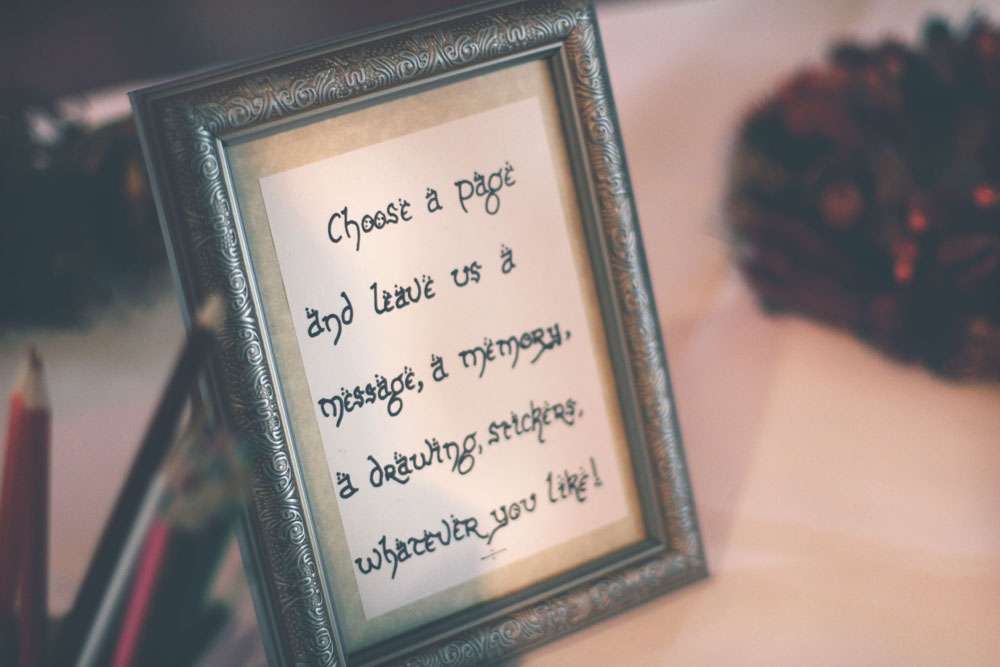 Choose a page
and leave us a
message, a memory,
a drawing, stickers,
whatever you like!